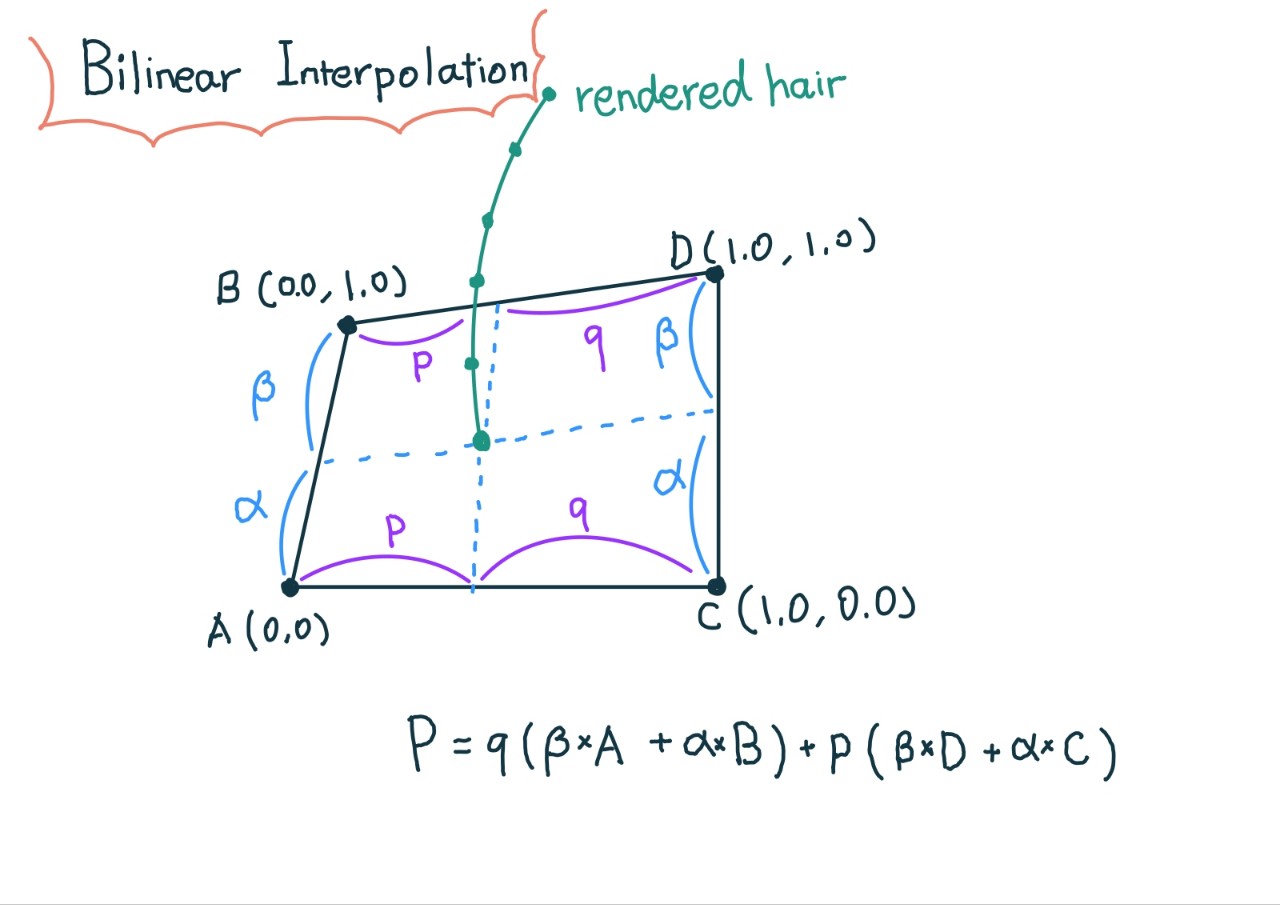 Bilinear Interpolation
rendered hair
D(1.0, 1.0)
B (0.0, 1.0)
β
p
q
β
α
p
q
α
A (0,0)
C (1.0, 0.0)
P = q(β×A + α×B) + p(β×D + α×C)